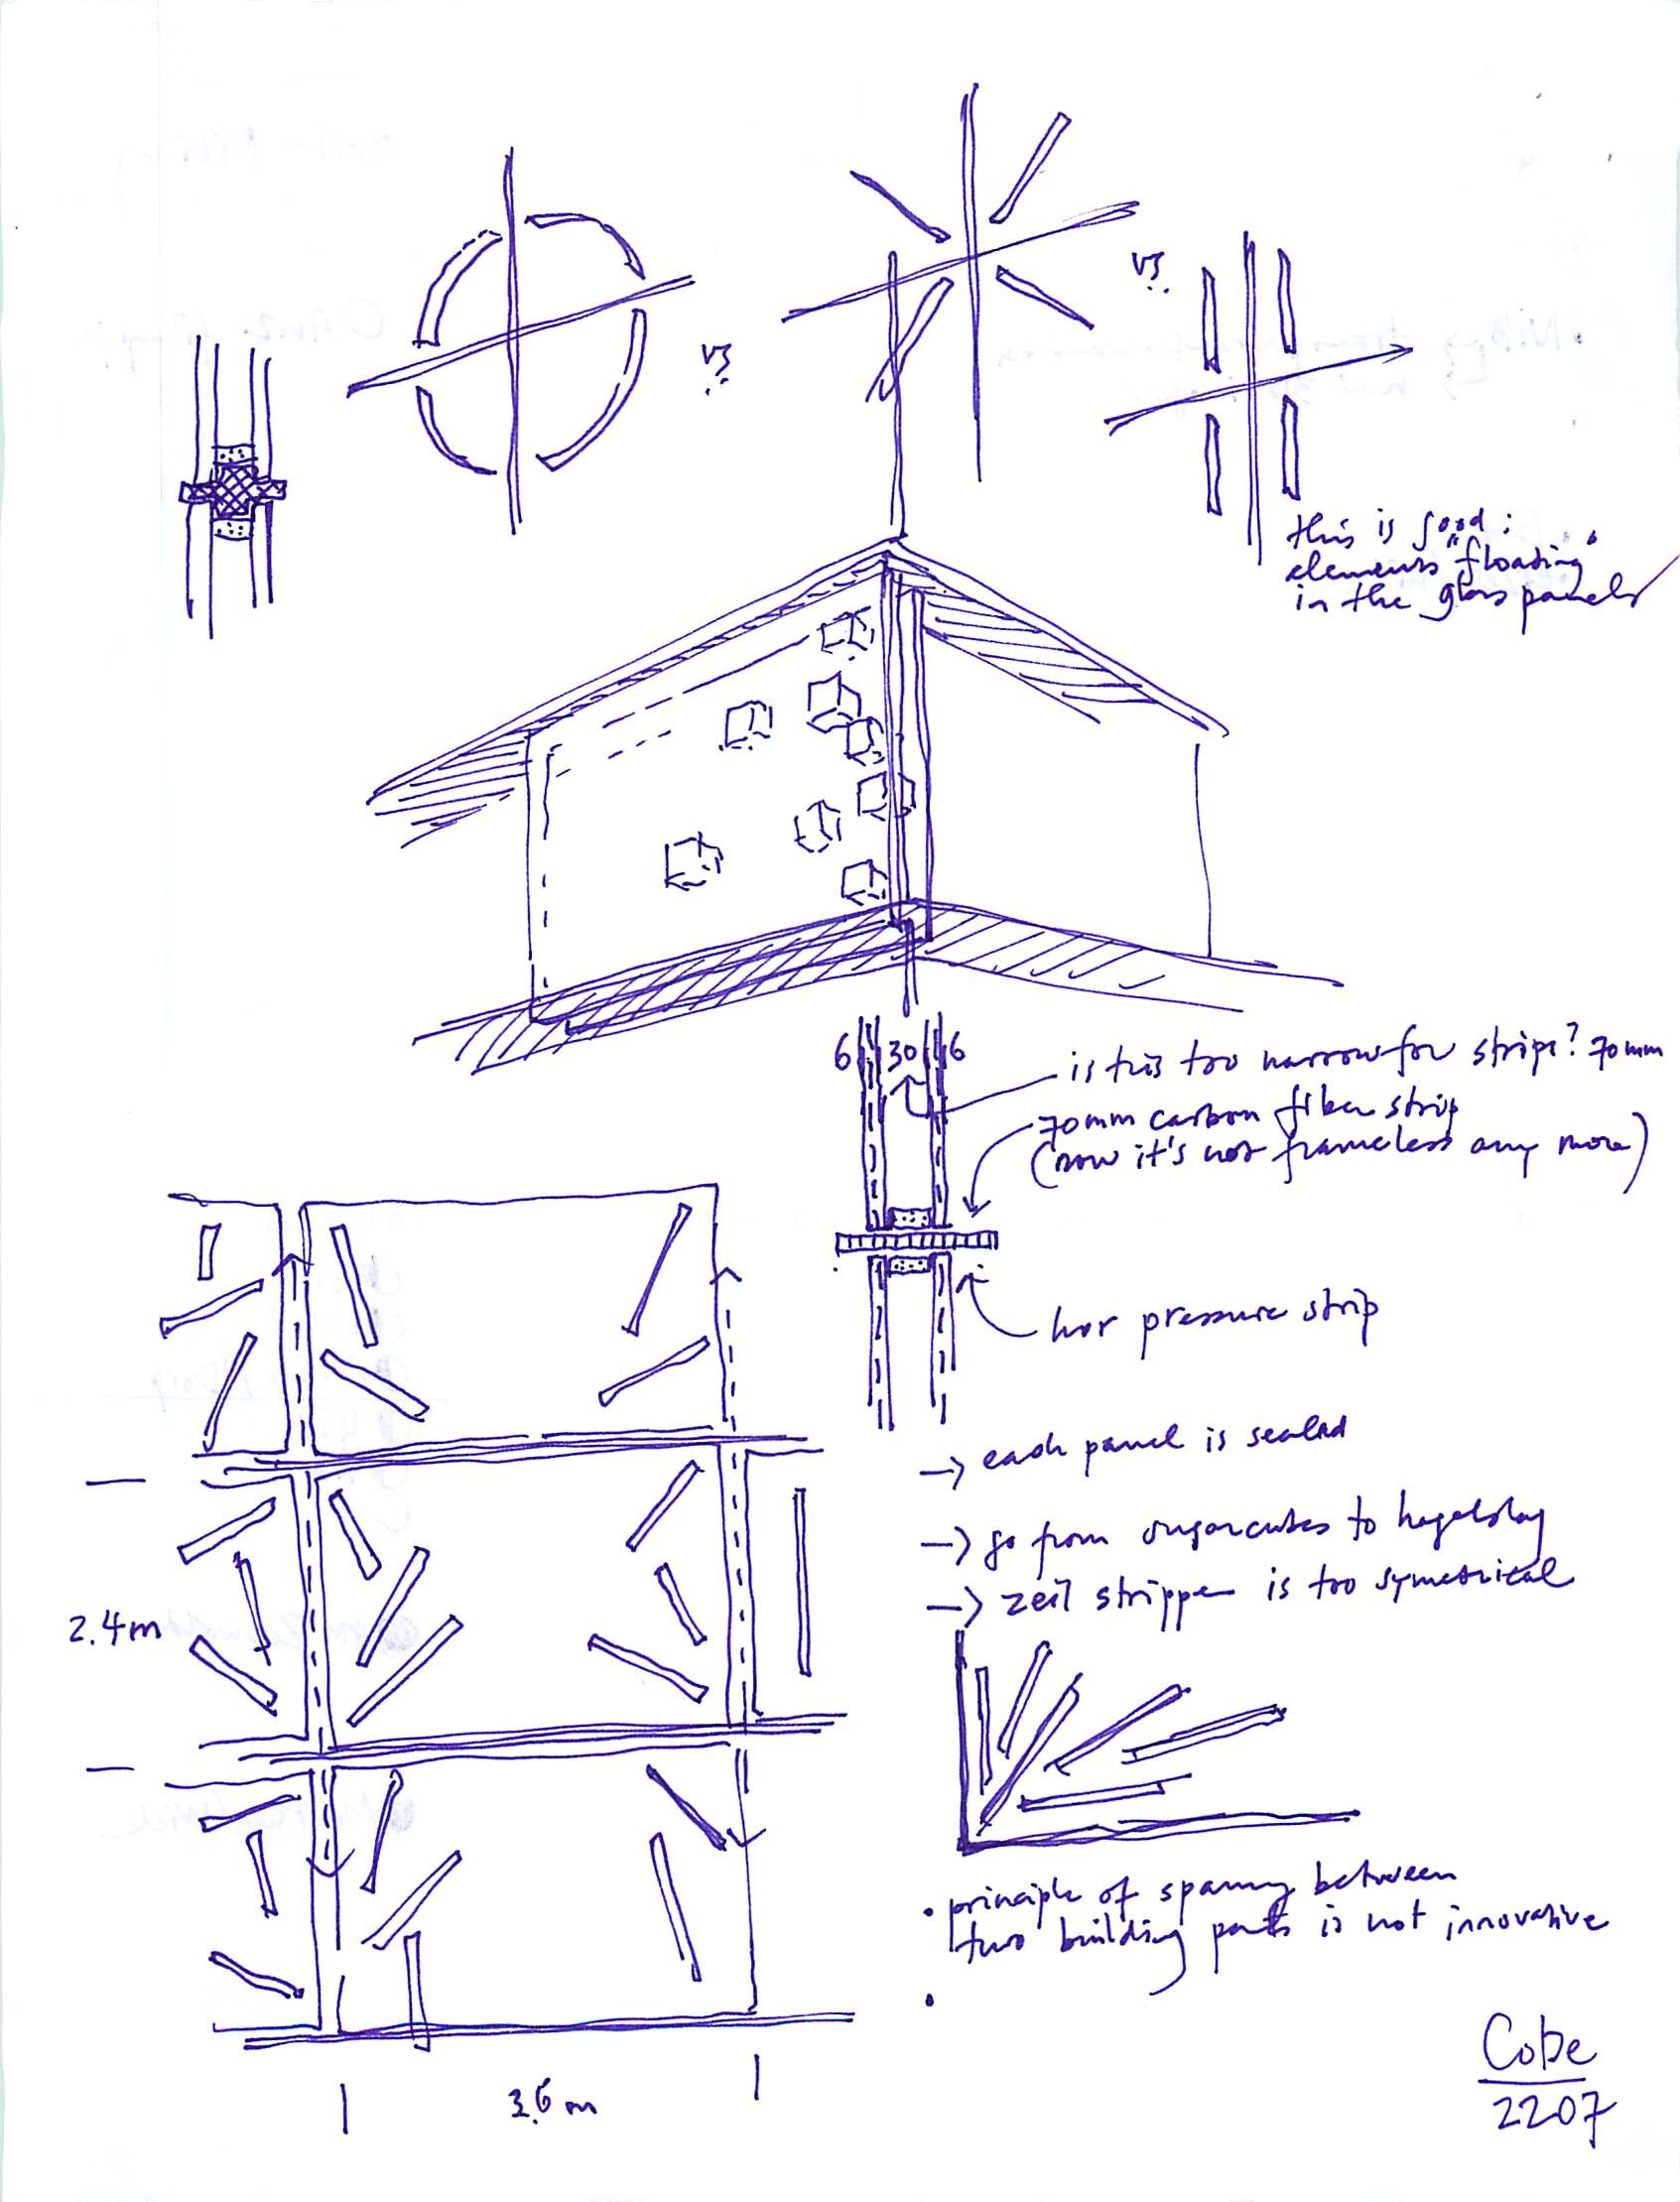 vs
vs
this is good:
elements "floading"
in the glass panels
6 30 6
is this too narrow for strips? 70mm
70mm carbon fiber strip
(now it's not frameless any more)
hor pressure strip
→ each panel is sealed
→ go from sugarcubes to hagelslag
→ zeil stripper is too symetrical
2.4m
• principle of spanning between
two building parts is not innovative
•
3.6 m
Cobe
2207